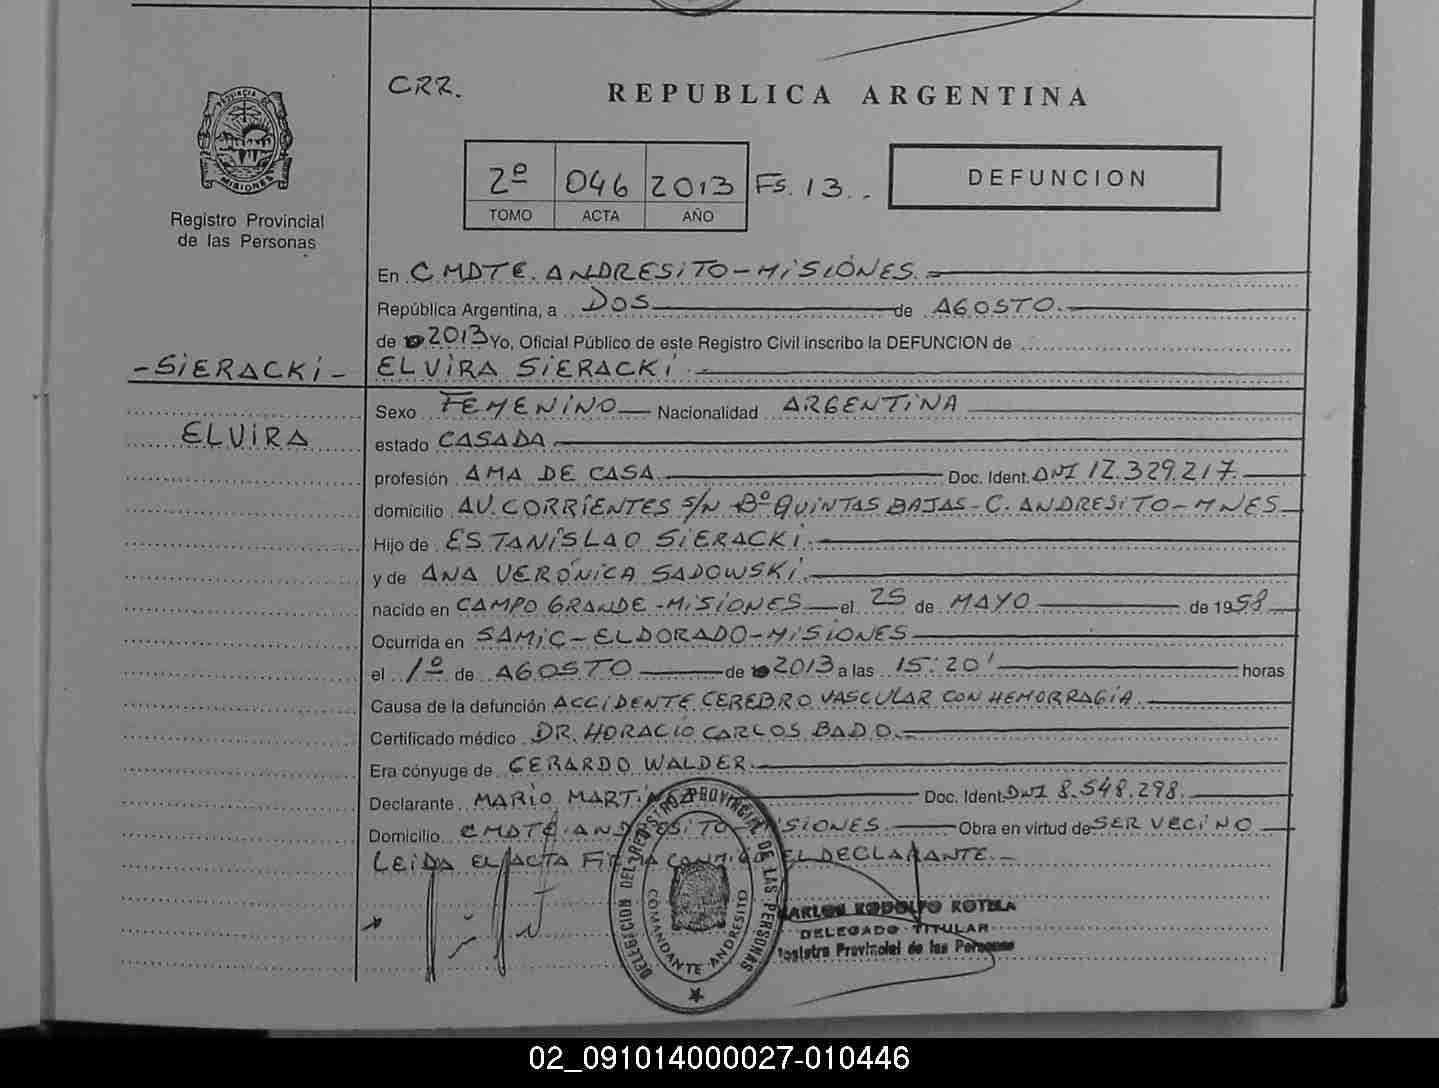 CRR.
REPUBLICA ARGENTINA
PROVINCIA DE
MISIONES
Registro Provincial
de las Personas
2º 046 2013 Fs. 13..
TOMO ACTA AÑO
DEFUNCION
En CMDTE. ANDRESITO-MISIONES.
República Argentina, a DOS de AGOSTO.
de 2013 Yo, Oficial Público de este Registro Civil inscribo la DEFUNCION de
-SIERACKI- ELVIRA SIERACKI.
Sexo FEMENINO Nacionalidad ARGENTINA
ELVIRA estado CASADA
profesión AMA DE CASA Doc. Ident. DNI 12.329.217.
domicilio AV. CORRIENTES S/N Bº QUINTAS BAJAS-C. ANDRESITO-MNES
Hijo de ESTANISLAO SIERACKI.
y de ANA VERÓNICA SADOWSKI.
nacido en CAMPO GRANDE-MISIONES el 25 de MAYO de 1958
Ocurrida en SAMIC-ELDORADO-MISIONES
el 1º de AGOSTO de 2013 a las 15:20' horas
Causa de la defunción ACCIDENTE CEREBRO VASCULAR CON HEMORRAGIA.
Certificado médico DR. HORACIO CARLOS BADO.
Era cónyuge de GERARDO WALDER.
Declarante MARIO Doc. Ident. DNI 8.548.298.
Domicilio CMDTE. ANDRESITO MISIONES Obra en virtud de SER VECINO
LEIDA EL ACTA FIRMA CONMIGO EL DECLARANTE.-
DELEGACION DEL REGISTRO PROVINCIAL DE LAS PERSONAS
COMANDANTE ANDRESITO
CARLOS RODOLFO ROTELA
DELEGADO TITULAR
Registro Provincial de las Personas
02_091014000027-010446